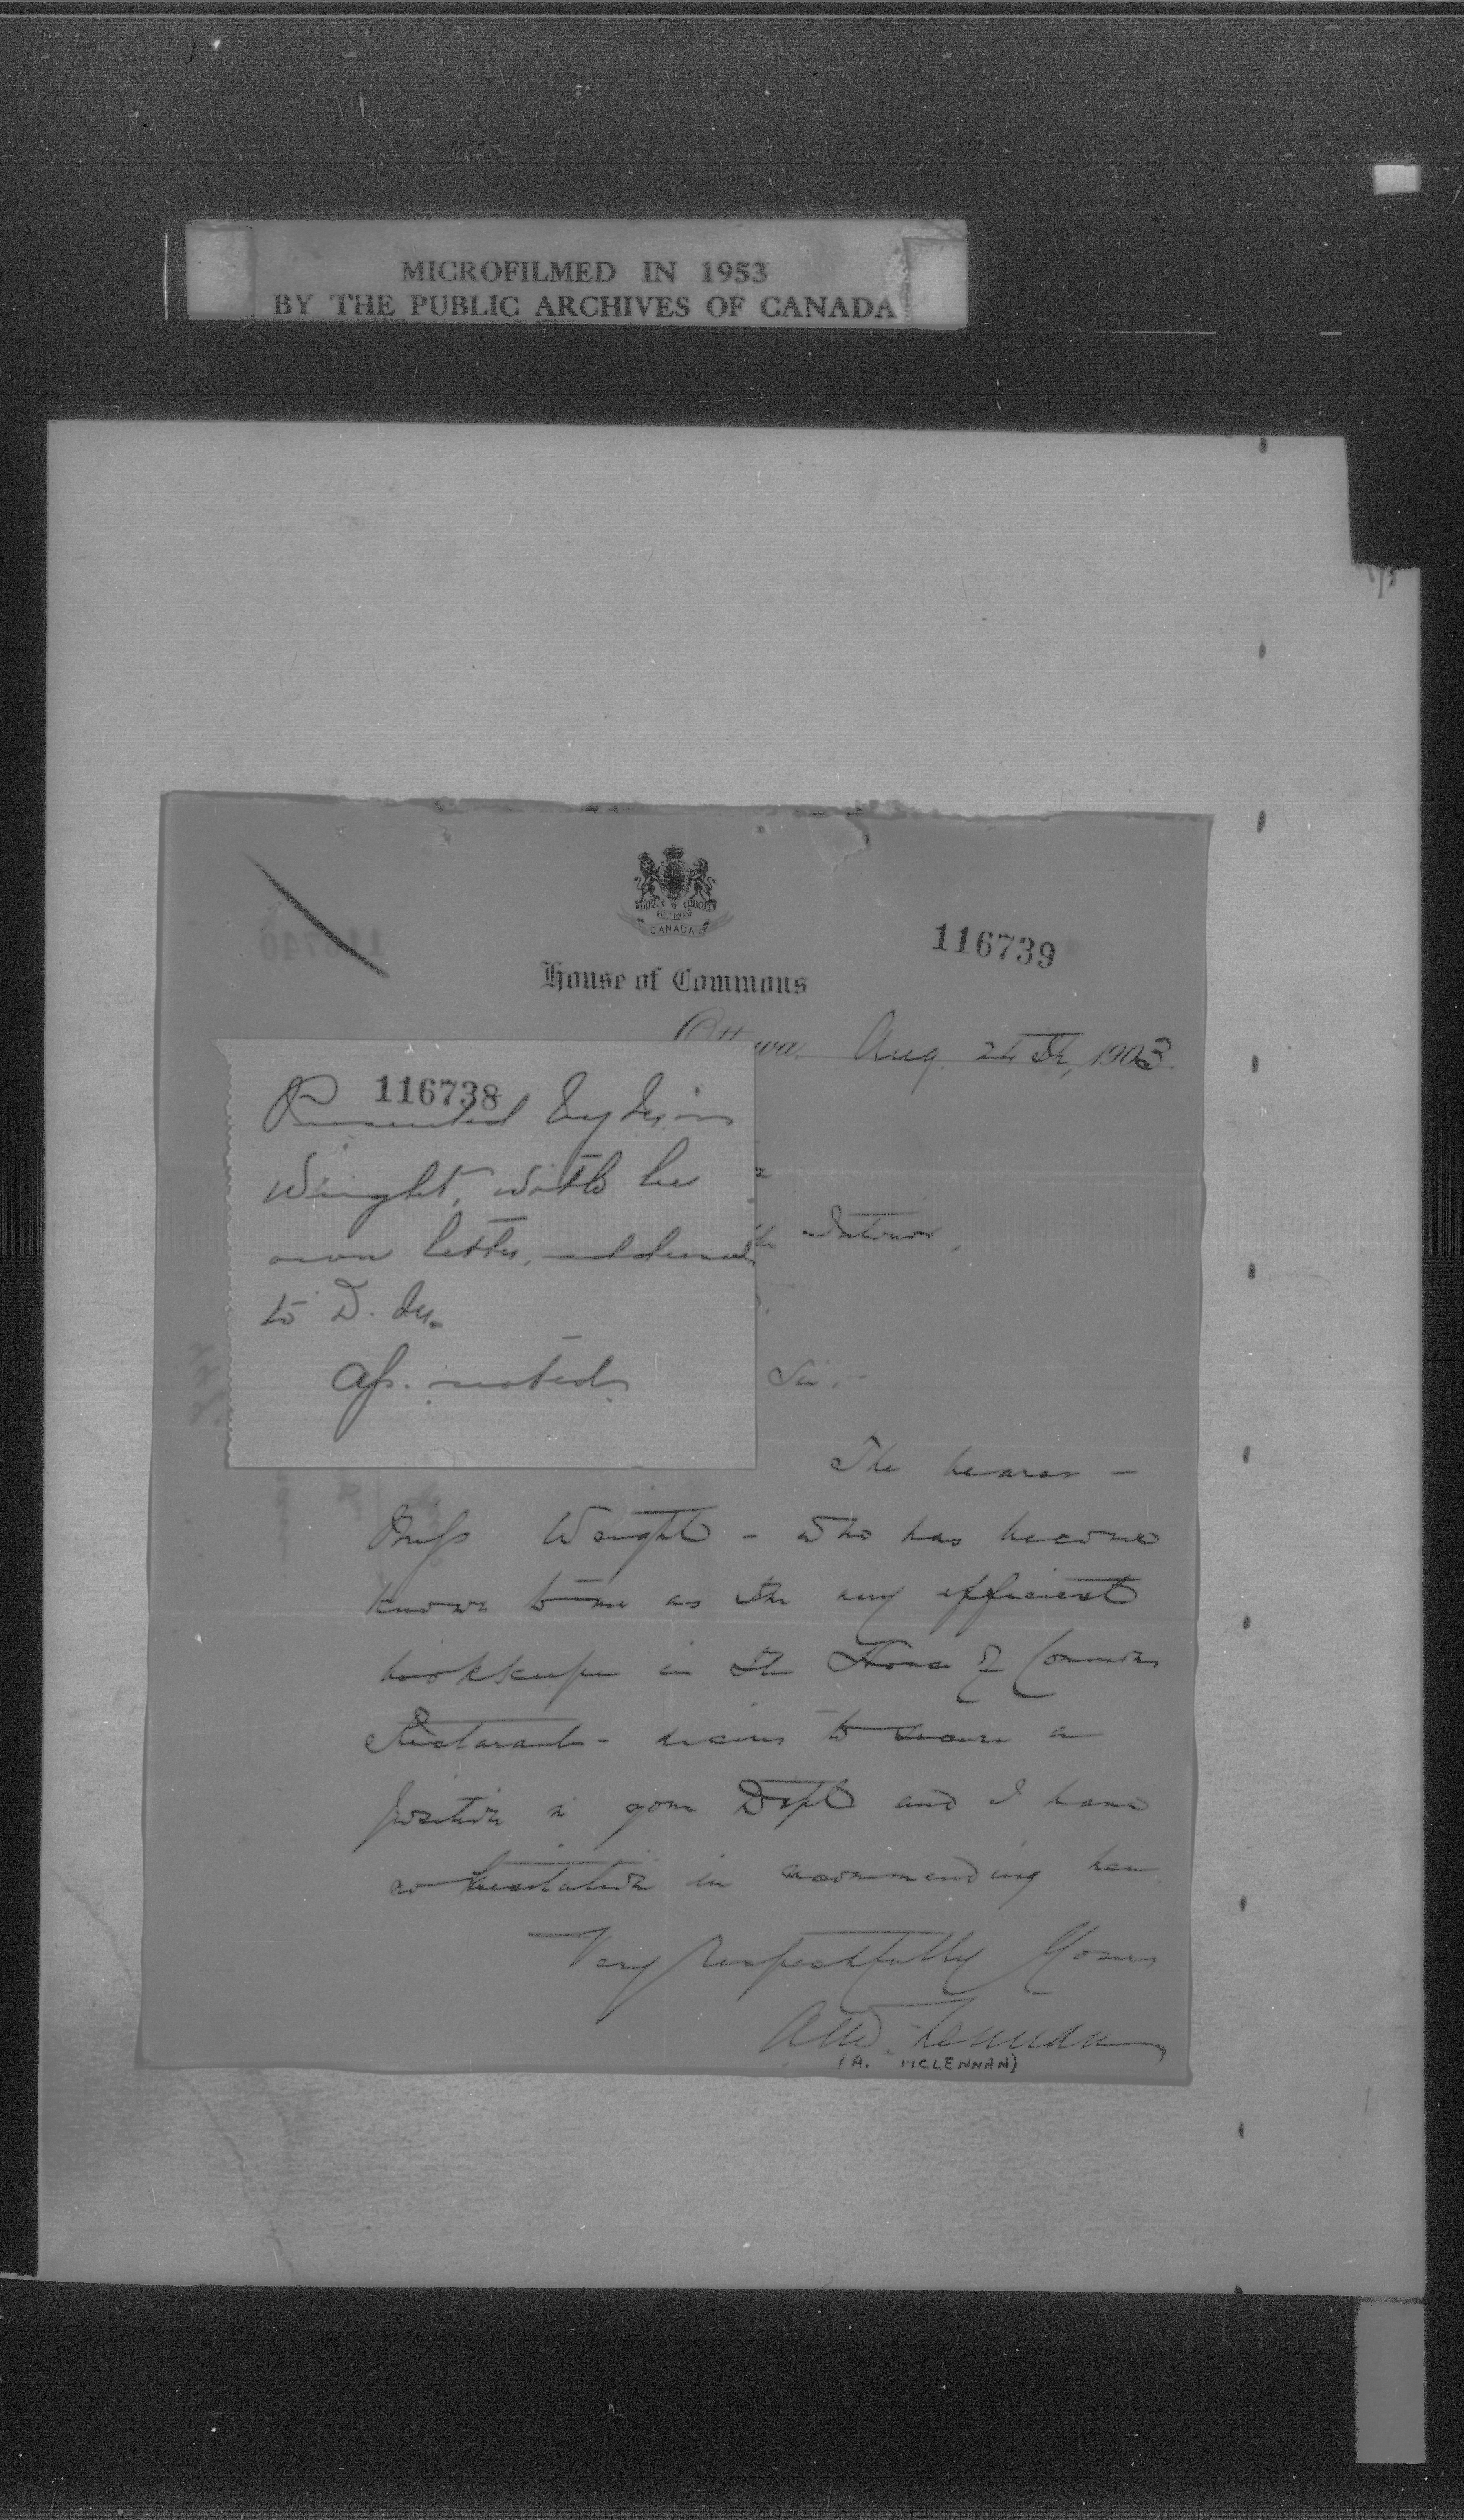 MICROFILMED IN 1953
BY THE PUBLIC ARCHIVES OF CANADA
CANADA
House of Commons
116739
Ottawa, Aug. 24th, 1903.
116738
Presented by Miss
Wright, with her
own letter, addressed
to D. M.
Ap. noted
Interior,
Sir,-
The bearer -
Miss Wright - who has become
known to me as the very efficient
bookkeeper in the House of Commons
Restaurant - desires to secure a
position in your Dept and I have
no hesitation in recommending her
Very respectfully Yours
A McLennan
(A. MCLENNAN)